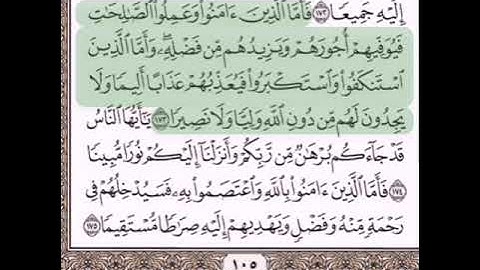 إِلَيْهِ جَمِيعًا ١٧٢ فَأَمَّا ٱلَّذِينَ ءَامَنُوا۟ وَعَمِلُوا۟ ٱلصَّـٰلِحَـٰتِ
فَيُوَفِّيهِمْ أُجُورَهُمْ وَيَزِيدُهُم مِّن فَضْلِهِۦ ۖ وَأَمَّا ٱلَّذِينَ
ٱسْتَنكَفُوا۟ وَٱسْتَكْبَرُوا۟ فَيُعَذِّبُهُمْ عَذَابًا أَلِيمًا وَلَا
يَجِدُونَ لَهُم مِّن دُونِ ٱللَّهِ وَلِيًّا وَلَا نَصِيرًا ١٧٣ يَـٰٓأَيُّهَا ٱلنَّاسُ
قَدْ جَآءَكُم بُرْهَـٰنٌ مِّن رَّبِّكُمْ وَأَنزَلْنَآ إِلَيْكُمْ نُورًا مُّبِينًا
١٧٤ فَأَمَّا ٱلَّذِينَ ءَامَنُوا۟ بِٱللَّهِ وَٱعْتَصَمُوا۟ بِهِۦ فَسَيُدْخِلُهُمْ فِى
رَحْمَةٍ مِّنْهُ وَفَضْلٍ وَيَهْدِيهِمْ إِلَيْهِ صِرَٰطًا مُّسْتَقِيمًا ١٧٥
١٠٥